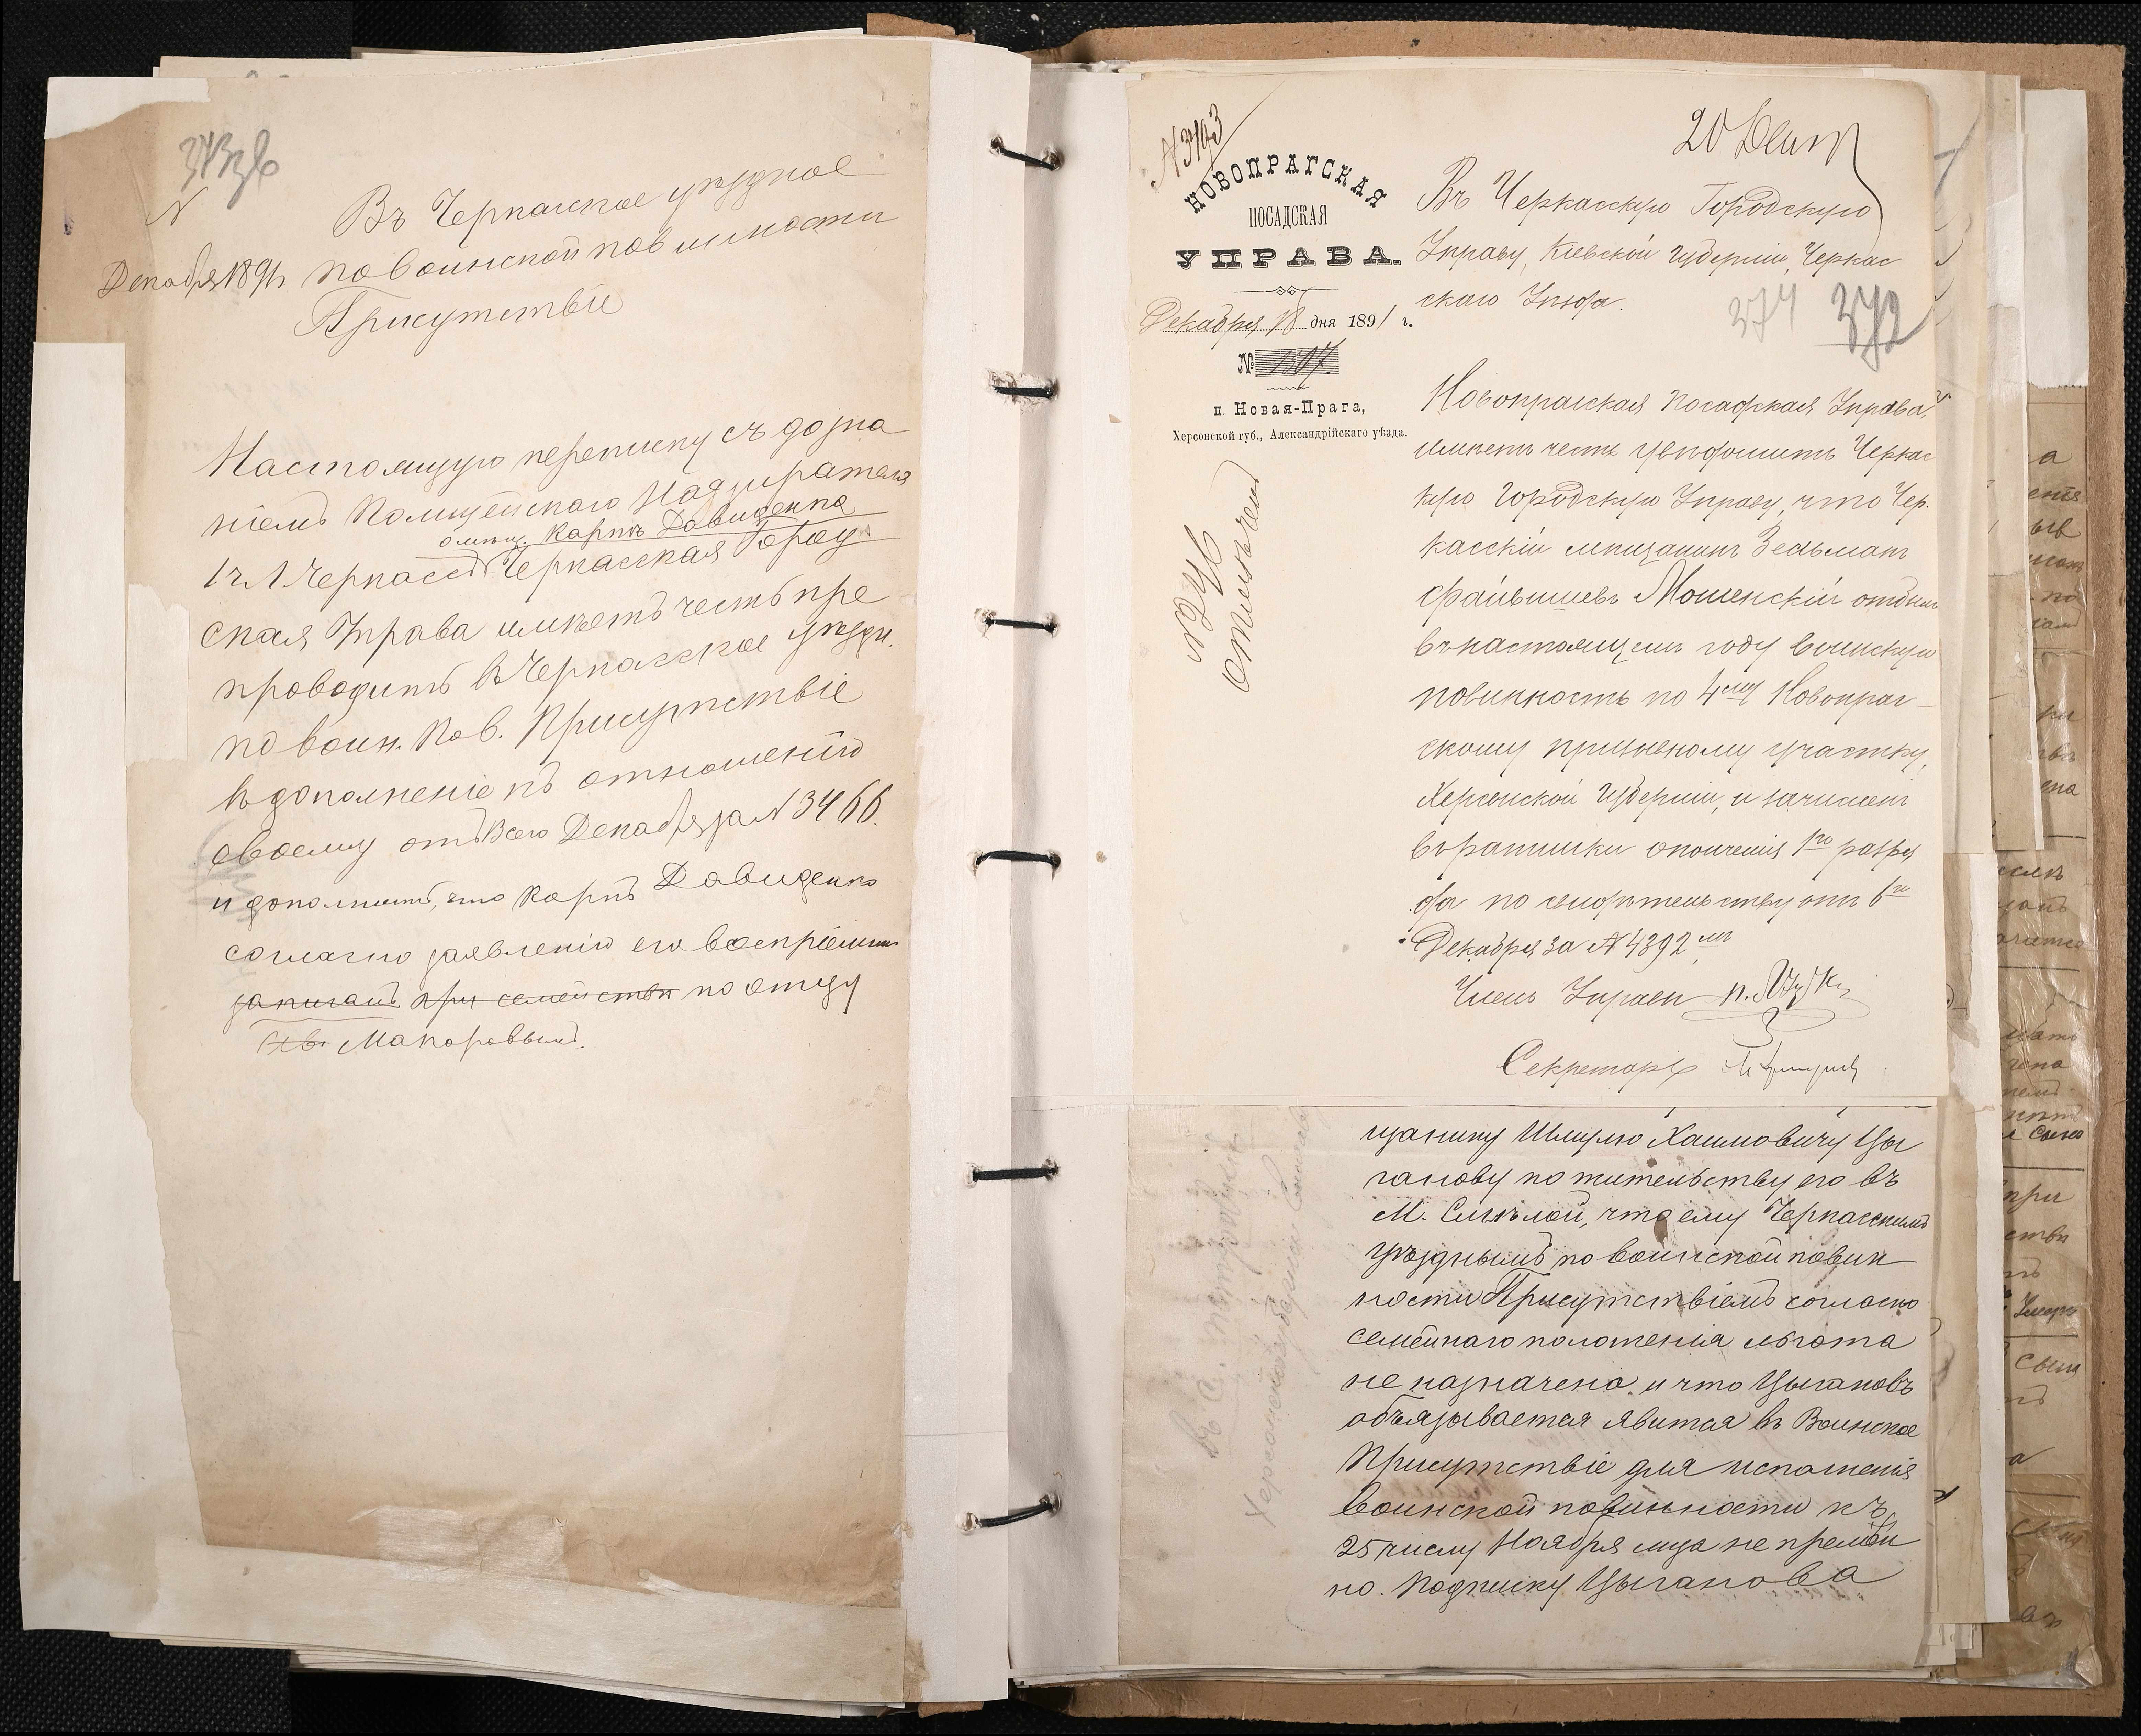 Въ Черкасское уѣздное
Декабря 1891 по воинской повинности
Присутствіе
Настоящую переписку съ дозна
ніемъ Полицейскаго Надзирателя
о мѣщ. Карпѣ Давиденкѣ
1 ч. г. Черкассъ Черкасская Город
ская Управа имѣетъ честь пре
проводить въ Черкасское уѣздн.
по воин. пов. Присутствіе
въ дополненіе къ отношенію
своему отъ сего Декабря за № 3466.
и дополнить, что Карпъ Давиденко
согласно заявленію его воспріемни
записанъ при семействѣ по отцу
Макаровымъ.
№ 3193
20 Дек
НОВОПРАГСКАЯ
ПОСАДСКАЯ
УПРАВА.
Декабря 18 дня 1891 г.
№ 1507.
п. Новая-Прага,
Херсонской губ., Александрійскаго уѣзда.
отмѣчено
Въ Черкасскую Городскую
Управу, Кіевской губерніи, Черкас
скаго Уѣзда.
374 372
Новопрагская Посадская Управа,
имѣетъ честь увѣдомить Черкас
кую Городскую Управу, что Чер.
касскій мѣщанинъ Зельманъ
Файвишевъ Мошенскій отбылъ
въ настоящемъ году воинскую
повинность по 4му Новопраг
скому призывному участку,
Херсонской губерніи, и зачисленъ
въ ратники ополченія 1го разря
да по свидѣтельству отъ 6го
Декабря за № 4392мъ
Членъ Управы
Секретарь
щанину Шмулю Хаимовичу Цы
ганову по жительству его въ
М. Смѣлой, что ему Черкасскимъ
уѣзднымъ по воинской повин
ности Присутствіемъ согласно
семейнаго положенія льгота
не назначена и что Цыгановъ
обязывается явится въ Воинское
Присутствіе для исполненія
воинской повинности къ
25 числу Ноября мца не премѣн
но. Подписку Цыганова